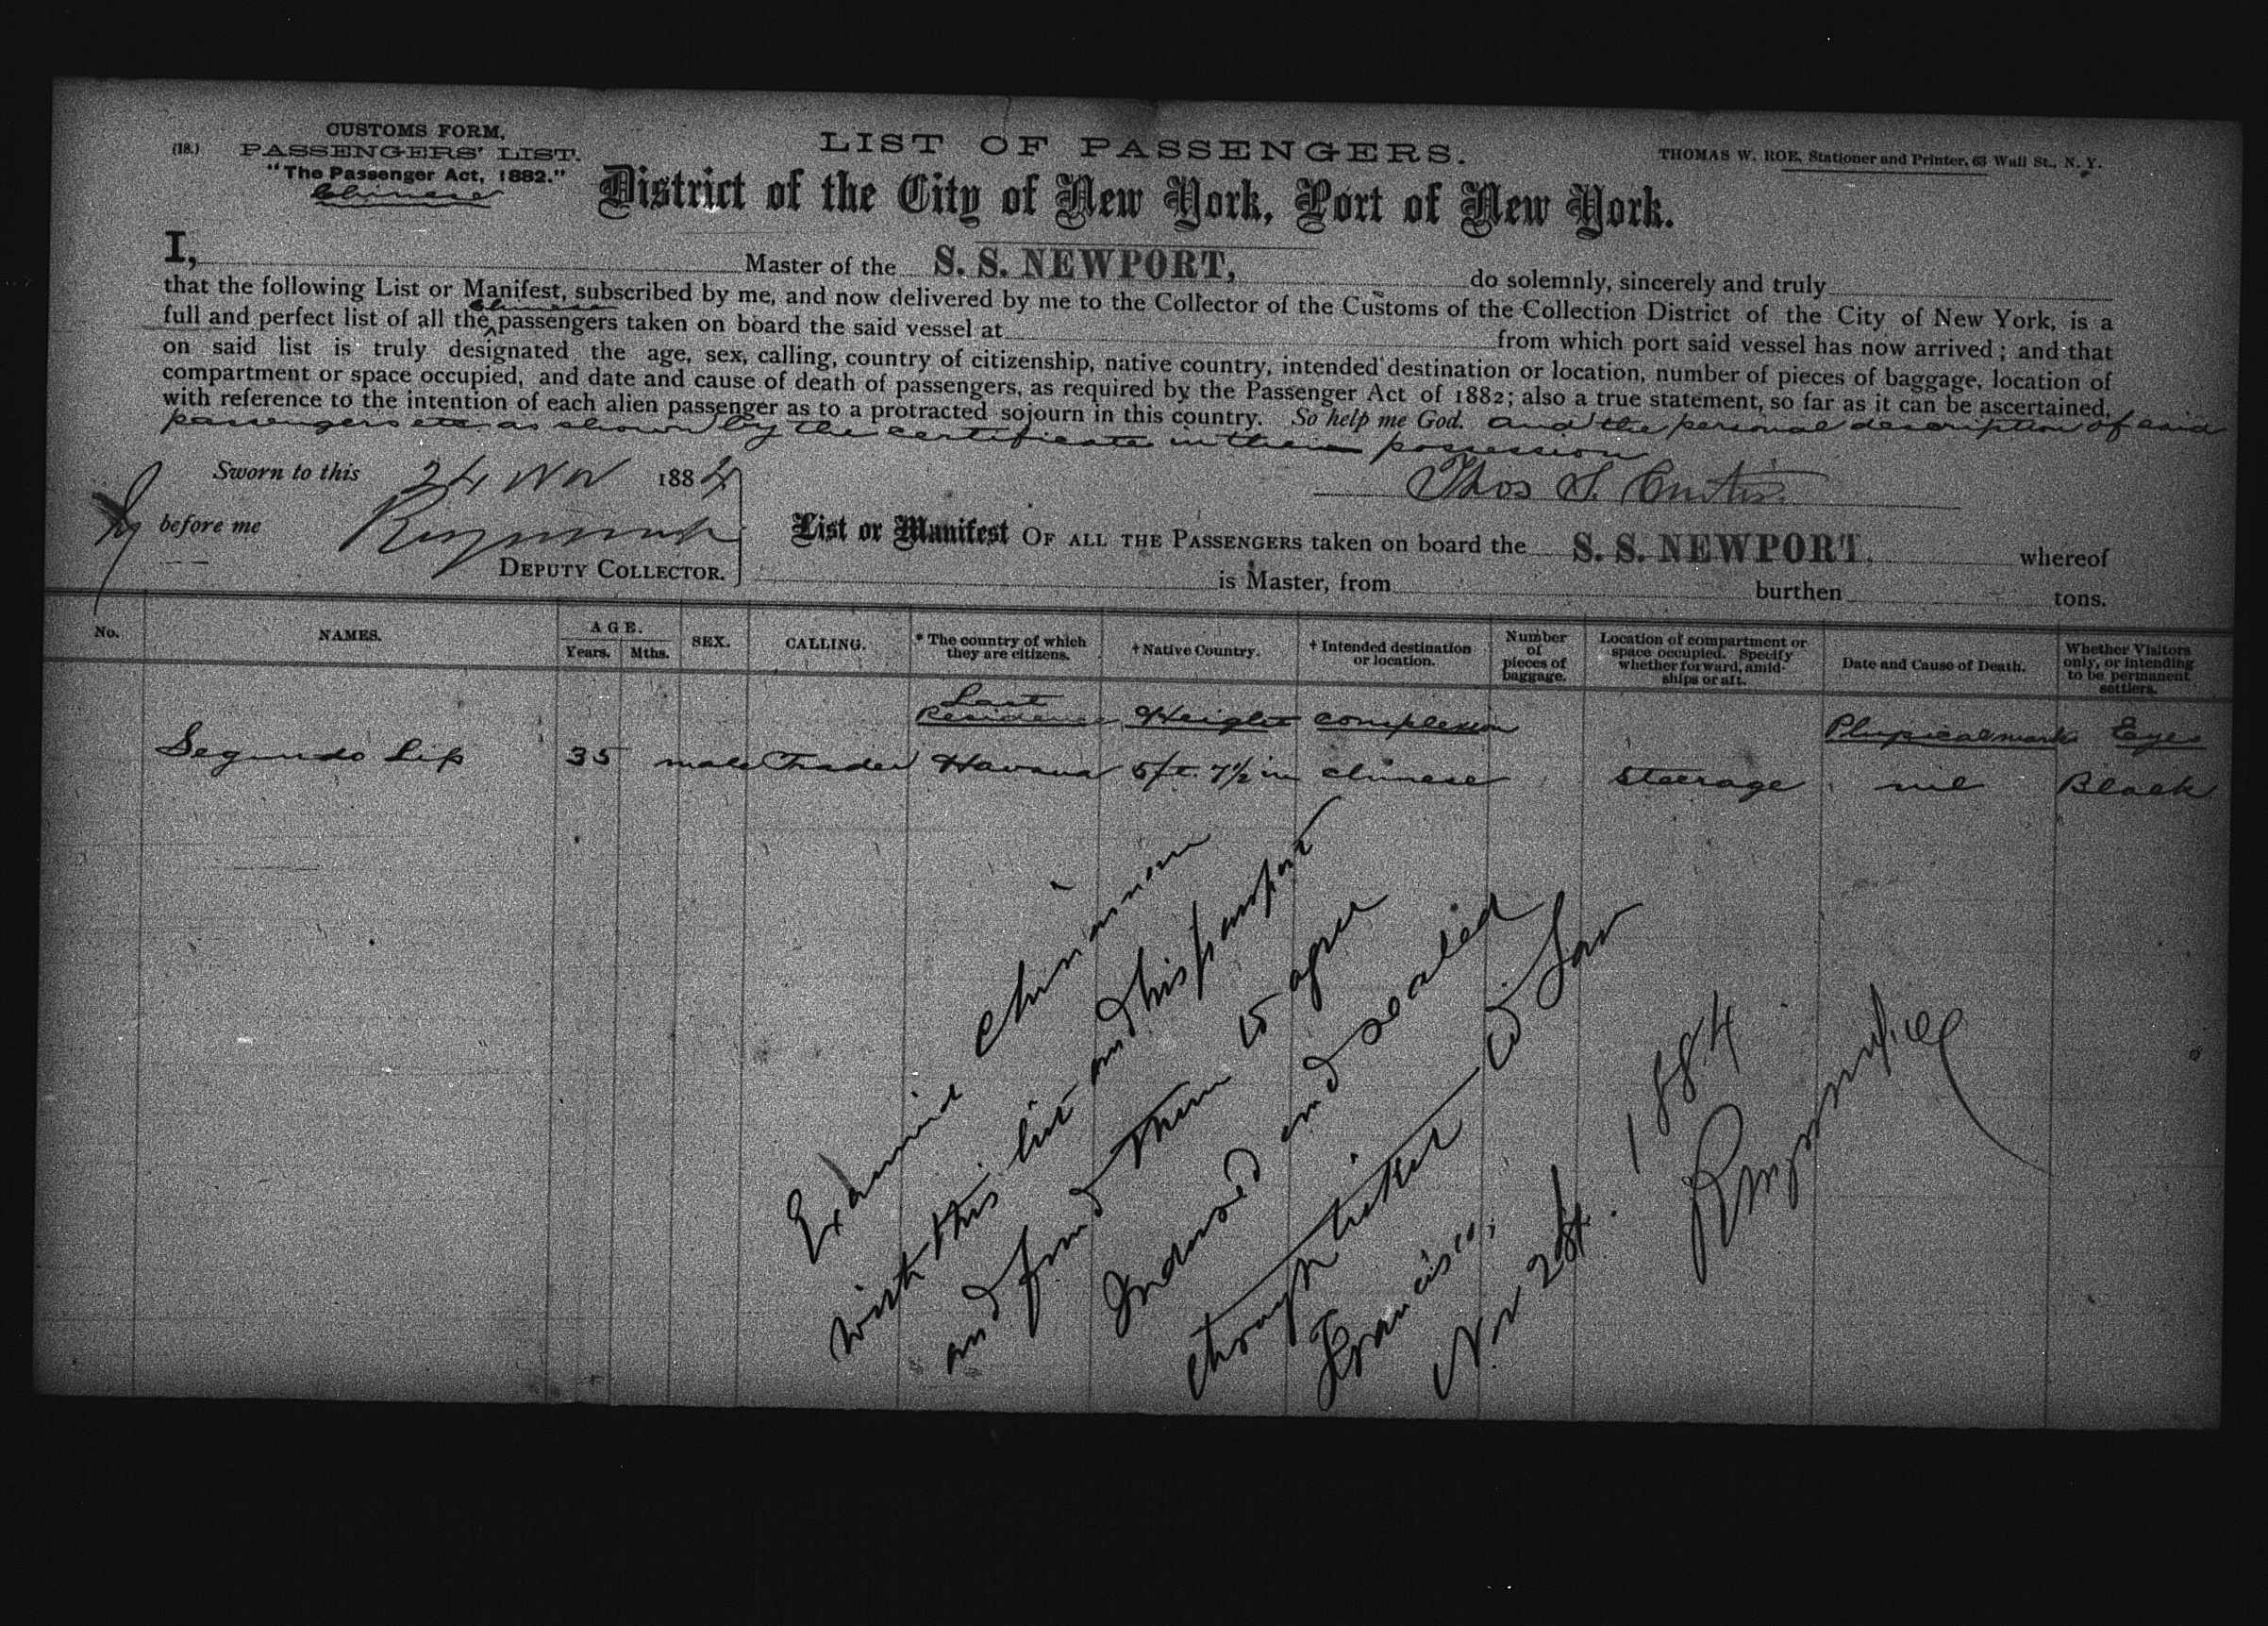 (18.)
CUSTOMS FORM,
PASSENGERS' LIST.
"The Passenger Act, 1882."
Chinese
LIST OF PASSENGERS.
THOMAS W. ROE, Stationer and Printer, 63 Wall St., N. Y.
District of the City of New York, Port of New York.
I, Master of the S. S. NEWPORT, do solemnly, sincerely and truly
that the following List or Manifest, subscribed by me, and now delivered by me to the Collector of the Customs of the Collection District of the City of New York, is a
full and perfect list of all the Chinese passengers taken on board the said vessel at from which port said vessel has now arrived; and that
on said list is truly designated the age, sex, calling, country of citizenship, native country, intended destination or location, number of pieces of baggage, location of
compartment or space occupied, and date and cause of death of passengers, as required by the Passenger Act of 1882; also a true statement, so far as it can be ascertained,
with reference to the intention of each alien passenger as to a protracted sojourn in this country. So help me God. and the personal description of said
passengers etc as shown by the certificate in their possession
Sworn to this 24 Nov 1884
Thos S. Curtis
before me
DEPUTY COLLECTOR.
List or Manifest OF ALL THE PASSENGERS taken on board the S. S. NEWPORT, whereof
is Master, from burthen tons.
No. NAMES. AGE. Years. Mths. SEX. CALLING. * The country of which they are citizens. † Native Country. † Intended destination or location. Number of pieces of baggage. Location of compartment or space occupied. Specify whether forward, amidships or aft. Date and Cause of Death. Whether Visitors only, or intending to be permanent settlers.
Last Residence Height complexion Physical marks Eyes
Segundo Lip 35 male Trader Havana 5 ft. 7½ in chinese steerage nil Black
Examined chinaman
with this list and his passport
and found them to agree
Indorsed and sealed
through ticket to San
Francisco,
Nov 24. 1884